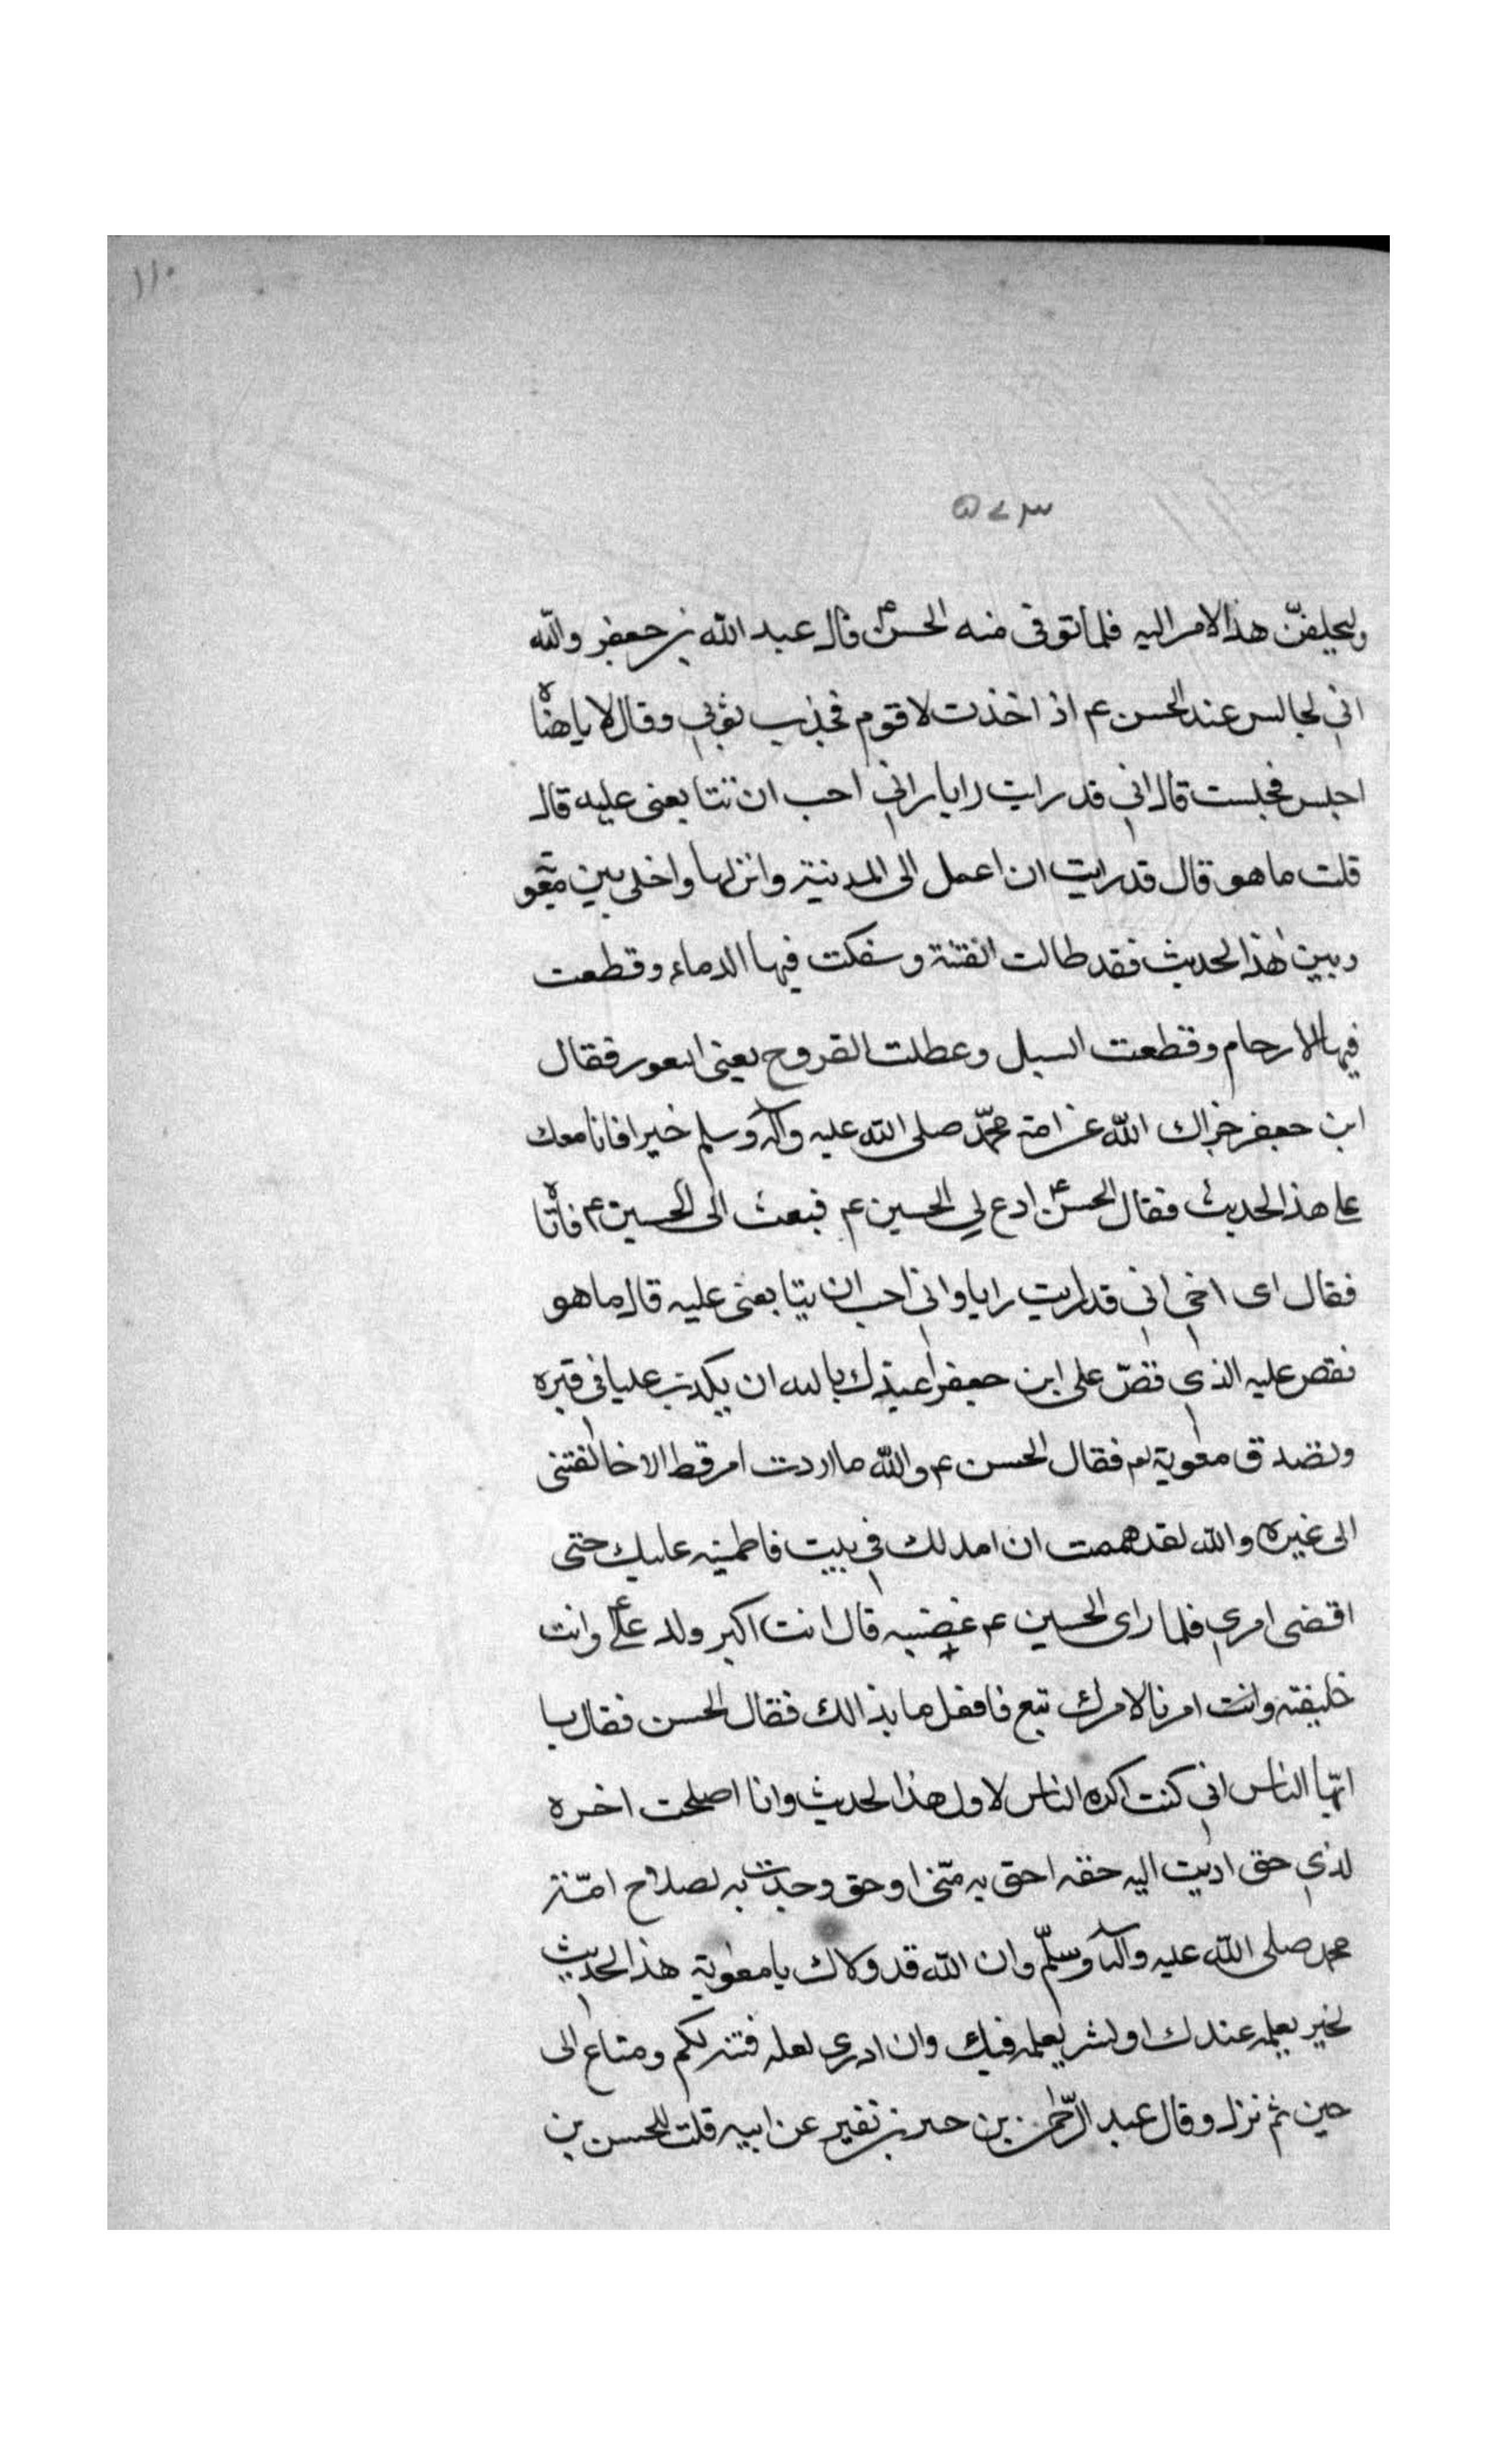 ١١٠
٥٧٣
وليجلفنّ هذا الامر اليه فلما توفى منه الحسنؑ قال عبد الله بن جعفر والله
اني لجالس عند الحسن عم اذ اخذت لاقوم فجذب بثوبي وقال لا ياهناه
اجلس فجلست قال اني قد رايت رايا راني احب ان تتابعنى عليه قال
قلت ما هو قال قد رايت ان اعمل الى المدينة وانزلها واخلى بين معو
وبين هذا الحديث فقد طالت الفتنة وسفكت فيها الدماء وقطعت
فيها الارحام وقطعت السبل وعطلت الفروج يعنى الثعور فقال
ابن جعفر جزاك الله عن امة محمّد صلى الله عليه وآله وسلم خيرا فانا معك
على هذا الحديث فقال الحسنؑ ادع لي الحسين عم فبعث الى الحسين عم فاتاه
فقال اى اخي انى قد رايت رايا وانى احب ان يتابعنى عليه قال ما هو
فقص عليه الذي قصّ على ابن جعفر اعيذك بالله ان يكذب عليا فى قبره
وتصدق معوية لع فقال الحسن عم والله ما اردت امر قط الا خالفتنى
الى غيره والله لقد هممت ان امد لك في بيت فاطمينه عليك حتى
اقضى امري فلما راى الحسين عم غضبه قال انت اكبر ولد علىؑ وانت
خليفته وانت امرنا لامرك تبع فافعل ما بذالك فقال الحسن فقال يا
ايّها الناس اني كنت اكره الناس لاول هذا الحديث وانا اصلحت اخره
لذي حق اديت اليه حقه احق به منّى او حق وجدت به لصلاح امّة
محمد صلى الله عليه وآله وسلّم وان الله قد ولاك يا معوية هذا الحديث
لخير يعلمه عندك او لشر يعلمه فيك وان ادرى لعله فتنة لكم ومتاع الى
حين ثم نزل وقال عبد الرّحمن بن حبر بن نفير عن ابيه قلت للحسن بن